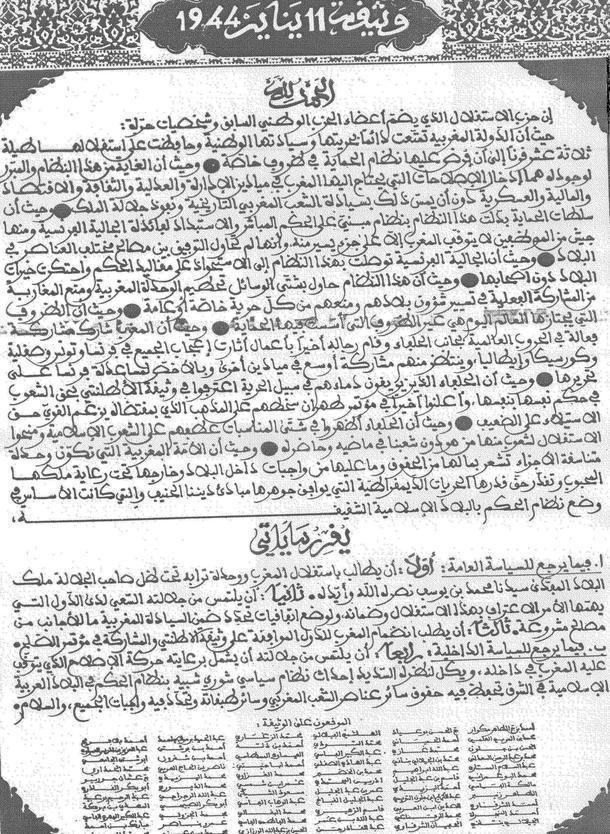 وثيقة 11 يناير 1944
الحمد لله
إن حزب الاستقلال الذي يضم أعضاء الحزب الوطني السابق وشخصيات حرة:
حيث أن الدولة المغربية تمتعت دائما بحريتها وسيادتها الوطنية وحافظت على استقلالها طيلة
ثلاثة عشر قرنا إلى أن فرض عليها نظام الحماية في ظروف خاصة ● وحيث أن الغاية من هذا النظام والمبرر
لوجوده هما إدخال الإصلاحات التي يحتاج إليها المغرب في ميادين الإدارة والعدلية والثقافة والاقتصاد
والمالية والعسكرية دون أن يمس ذلك بسيادة الشعب المغربي التاريخية ونفوذ جلالة الملك ● وحيث أن
سلطات الحماية بدلت هذا النظام بنظام مبني على الحكم المباشر والاستبداد لفائدة الجالية الفرنسية ومنها
جيش من الموظفين لا يتوقف المغرب إلا على جزء يسير منه وأنها لم تحاول التوفيق بين مصالح مختلف العناصر في
البلاد ● وحيث أن الجالية الفرنسية توصلت بهذا النظام إلى الاستحواذ على مقاليد الحكم واحتكرت خيرات
البلاد دون أصحابها ● وحيث أن هذا النظام حاول بشتى الوسائل تحطيم الوحدة المغربية ومنع المغاربة
من المشاركة الفعلية في تسيير شؤون بلادهم ومنعهم من كل حرية خاصة أو عامة ● وحيث أن الظروف
التي يجتازها العالم اليوم هي غير الظروف التي أسست فيها الحماية ● وحيث أن المغرب شارك مشاركة
فعالة في الحروب العالمية بجانب الحلفاء وقام رجاله أخيرا بأعمال أثارت إعجاب الجميع في فرنسا وتونس وصقلية
وكورسيكا وإيطاليا وينتظر منهم مشاركة أوسع في ميادين أخرى وبالأخص لمساعدة فرنسا على
تحريرها ● وحيث أن الحلفاء الذين يريقون دماءهم في سبيل الحرية اعترفوا في وثيقة الأطلنتي بحق الشعوب
في حكم نفسها بنفسها وأعلنوا أخيرا في مؤتمر طهران سخطهم على المذهب الذي بمقتضاه يزعم القوي حق
الاستيلاء على الضعيف ● وحيث أن الحلفاء أظهروا في شتى المناسبات عطفهم على الشعوب الإسلامية ومنحوا
الاستقلال لشعوب منها من هو دون شعبنا في ماضيه وحاضره ● وحيث أن الأمة المغربية التي تكون وحدة
متناسقة الأجزاء تشعر بما لها من الحقوق وما عليها من واجبات داخل البلاد وخارجها تحت رعاية ملكها
المحبوب وتقدر حق قدرها الحريات الديمقراطية التي يوافق جوهرها مبادئ ديننا الحنيف والتي كانت الأساس في
وضع نظام الحكم بالبلاد الإسلامية الشقيقة،
يقرر ما يأتي
ا. فيما يرجع للسياسة العامة: أولا: أن يطالب باستقلال المغرب ووحدة ترابه تحت ظل صاحب الجلالة ملك
البلاد المفدى سيدنا محمد بن يوسف نصره الله وأيده. ثانيا: أن يلتمس من جلالته السعي لدى الدول التي
يهمها الأمر الاعتراف بهذا الاستقلال وضمانه ولوضع اتفاقيات تحدد ضمن السيادة المغربية ما للأجانب من
مصالح مشروعة. ثالثا: أن يطلب انضمام المغرب للدول الموافقة على وثيقة الأطلنتي والمشاركة في مؤتمر الصلح.
ب. فيما يرجع للسياسة الداخلية: رابعا: أن يلتمس من جلالته أن يشمل برعايته حركة الإصلاح الذي يتوقف
عليه المغرب في داخله ويكل لنظره السديد إحداث نظام سياسي شوري شبيه بنظام الحكم في البلاد العربية
الإسلامية في الشرق تحفظ فيه حقوق سائر عناصر الشعب المغربي وسائر طبقاته وتحدد فيه واجبات الجميع، والسلام.
الموقعون على الوثيقة: